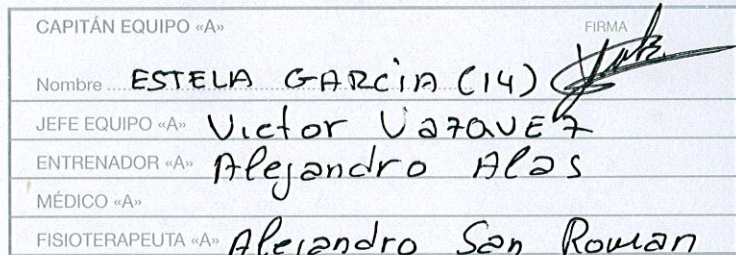 CAPITÁN EQUIPO «A» FIRMA
Nombre ESTELA GARCIA (14)
JEFE EQUIPO «A» Victor VazQUEz
ENTRENADOR «A» Alejandro Alas
MÉDICO «A»
FISIOTERAPEUTA «A» Alejandro San Roman